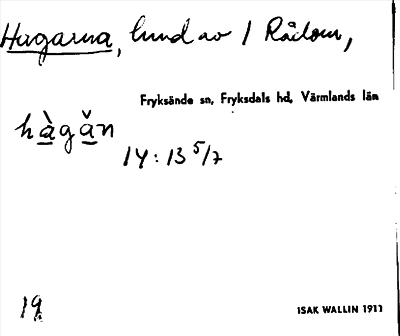 Hagarna, lund av / Rådom,
Fryksände sn, Fryksdals hd, Värmlands län
hàgăn
14:13 5/7
19
ISAK WALLIN 1911